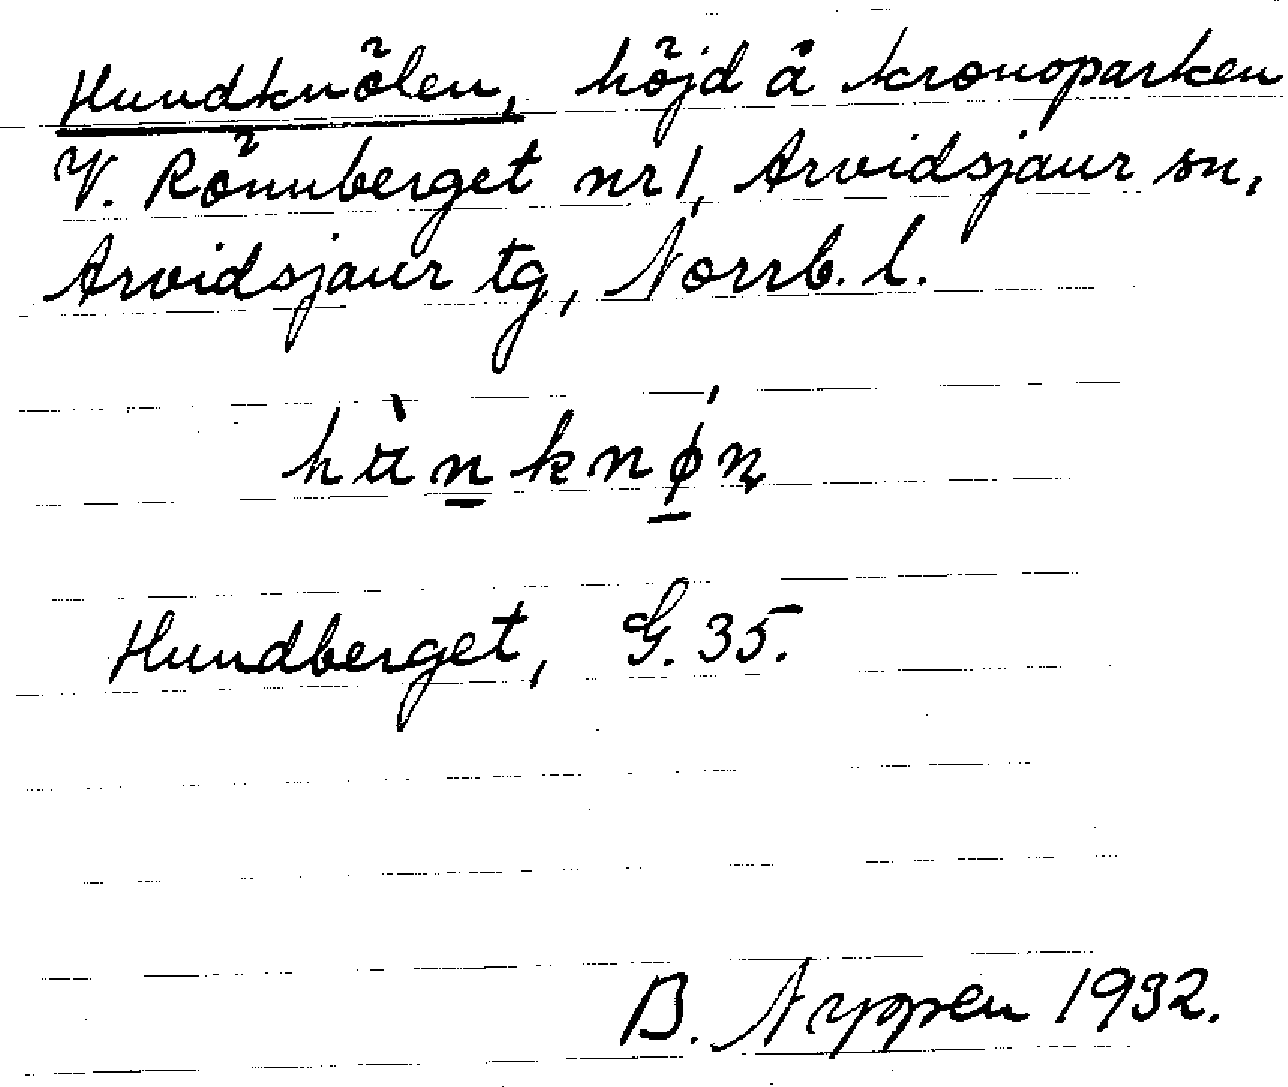 Hundknölen, höjd å kronoparken
V. Rönnberget nr 1, Arvidsjaur sn,
Arvidsjaur tg, Norrb. l.
hʉ̀n̠knǿ̠ɳ
Hundberget, G. 35.
B. Nyppen 1932.